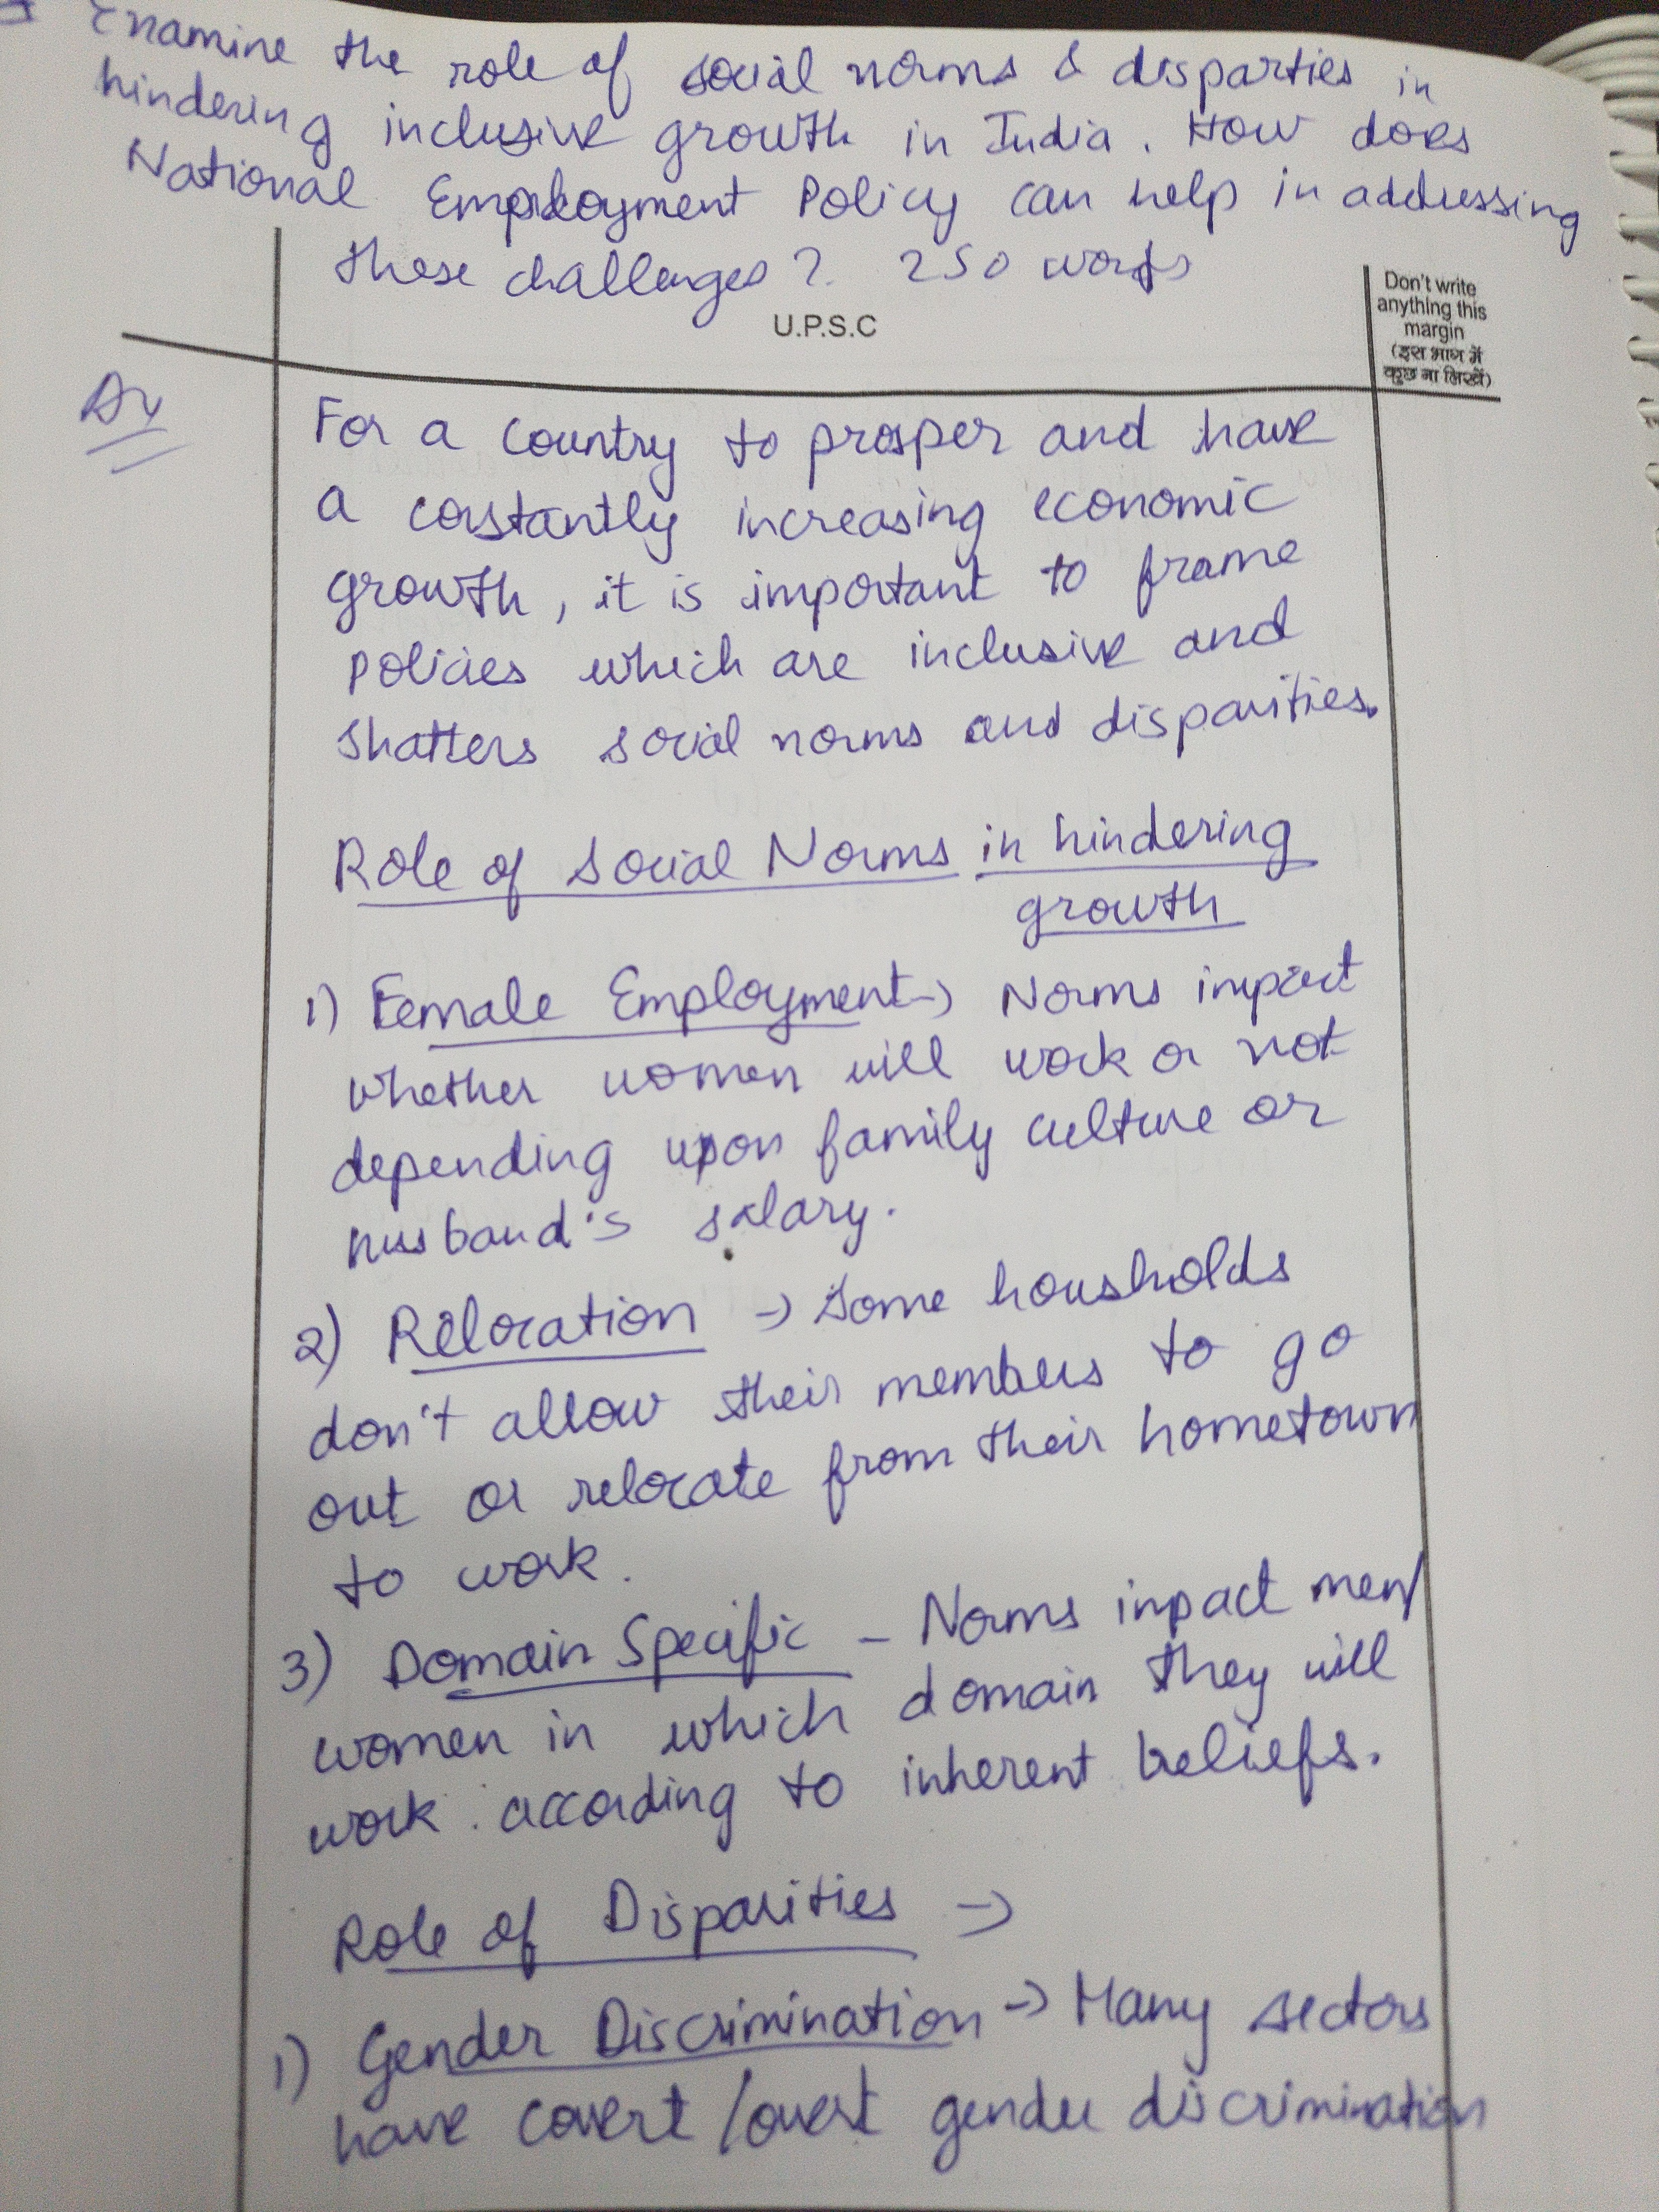 Examine the role of social norms & disparties in
hindering inclusive growth in India. How does
National Employment Policy can help in addressing
these challenges? 250 words
U.P.S.C
Don't write
anything this
margin
(इस भाग में
कुछ ना लिखें)
For a country to prosper and have
a constantly increasing economic
growth, it is important to frame
policies which are inclusive and
shatters social norms and disparities.
Role of Social Norms in hindering
growth
1) Female Employment -> Norms impact
whether women will work or not
depending upon family culture or
husband's salary.
2) Relocation -> Some housholds
don't allow their members to go
out or relocate from their hometown
to work.
3) Domain Specific - Norms impact men/
women in which domain they will
work according to inherent beliefs.
Role of Disparities ->
1) Gender Discrimination -> Many sectors
have covert/overt gender discrimination